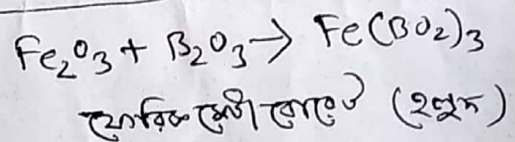 Fe₂O₃ + B₂O₃ → Fe(BO₂)₃
ফেরিক মেটা বোরেট (হলুদ)